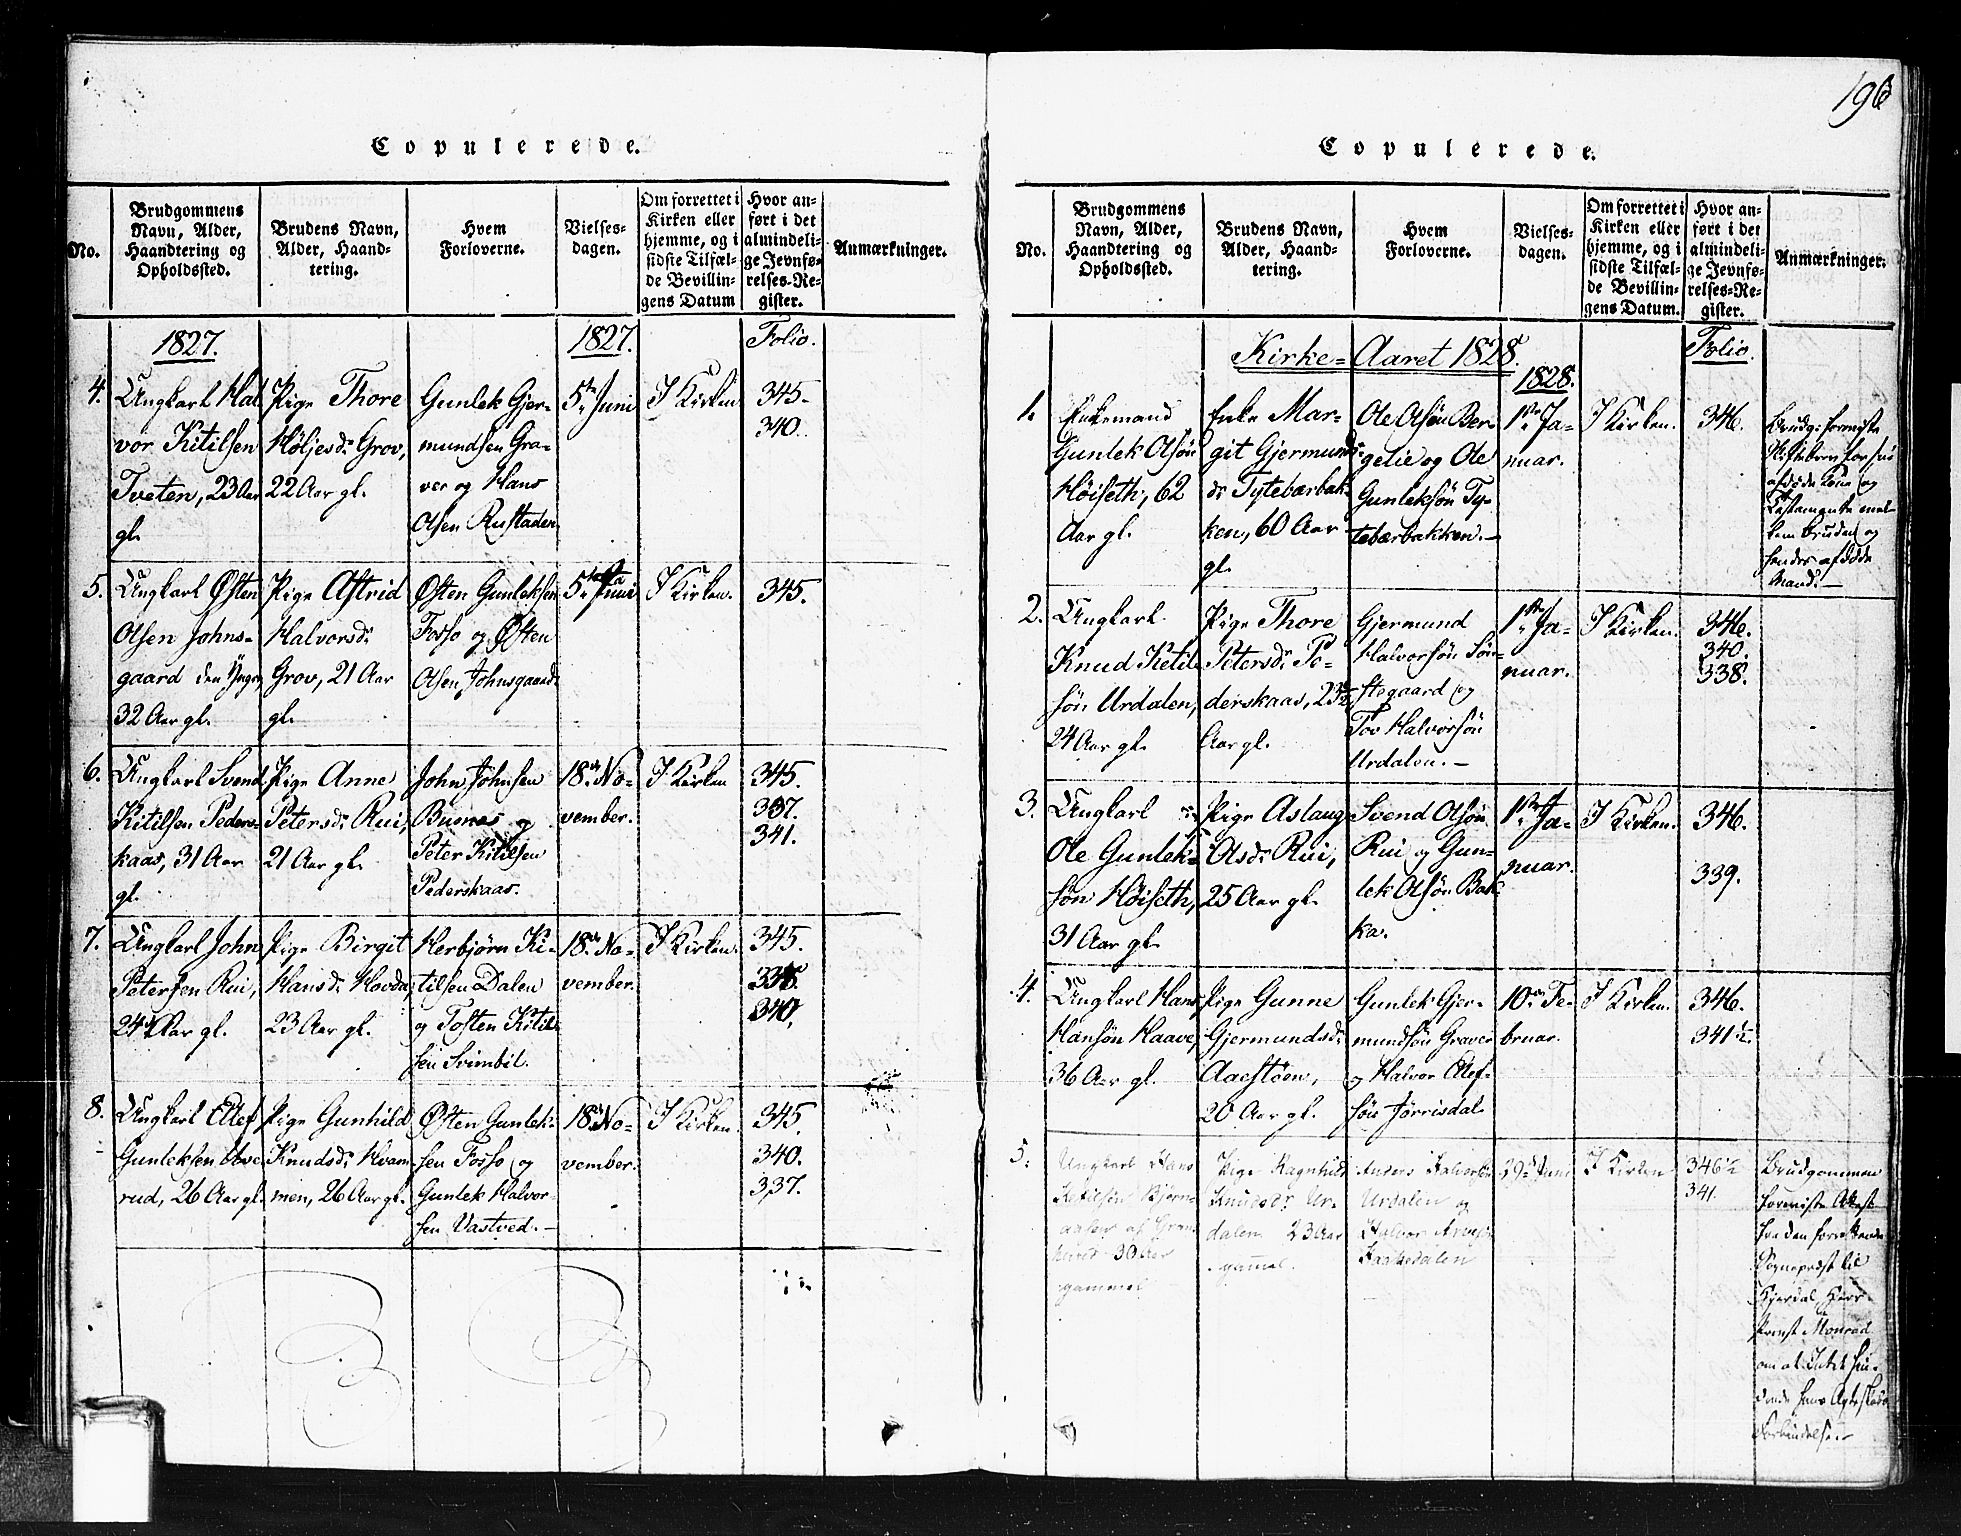 196
Copulerede.
No.
Brudgommens
Navn, Alder,
Haandtering og
Opholdssted.
Brudens Navn,
Alder, Haand-
tering.
Hvem
Forloverne.
Vielses-
dagen.
Om forrettet i
Kirken eller
hjemme, og i
sidste Tilfæl-
de Bevillin-
gens Datum
Hvor an-
ført i det
almindeli-
ge Jevnfø-
relses-Re-
gister.
Anmærkninger.
1827.
1827.
Folio.
4.
Ungkarl Hal
vor Kitilsen
Tveten, 23 Aar
gl.
Pige Thore
Høljesdr Grov,
22 Aar gl.
Gunlek Gjer-
mundsen Gra-
ver og Hans
Olsen Rustaden
5te Juni
I Kirken
345.
340.
5.
Ungkarl Østen
Olsen Johns-
gaard den Yngre,
32 Aar gl.
Pige Astrid
Halvorsdr
Grov, 21 Aar
gl.
Østen Gunleksen
Fosso og Østen
Olsen Johnsgaard
5te Juni
I Kirken.
345.
6.
Ungkarl Svend
Kitilsen Peders-
kaas, 31 Aar
gl.
Pige Anne
Petersdr Rui,
21 Aar gl.
John Johnsen
Busnes og
Peter Kitilsen
Pederskaas.
18de No-
vember.
I Kirken
345.
337.
341.
7.
Ungkarl John
Petersen Rui,
24 Aar gl.
Pige Birgit
Hansdr Hovda,
23 Aar gl.
Herbjørn Ki-
tilsen Dalen
og Tosten Kitil-
sen Svimbil.
18de No-
vember.
I Kirken.
345.
340.
8.
Ungkarl Ellef
Gunleksen
rud, 26 Aar gl.
Pige Gunhild
Knudsdr Hvam
men, 26 Aar gl.
Østen Gunlek-
sen Fosso og
Gunlek Halvor-
sen Vastved.
18de No-
vember.
I Kirken.
345.
340.
337.
Copulerede.
No.
Brudgommens
Navn, Alder,
Haandtering og
Opholdssted.
Brudens Navn,
Alder, Haand-
tering.
Hvem
Forloverne.
Vielses-
dagen.
Om forrettet i
Kirken eller
hjemme, og i
sidste Tilfæl-
de Bevillin-
gens Datum.
Hvor an-
ført i det
almindeli-
ge Jevnfø-
relses-Re-
gister.
Anmærkninger.
Kirke-Aaret 1828.
1828.
Folio.
1.
Enkemand
Gunlek Olsøn
Høiseth, 62
Aar gl.
Enke Mar-
git Gjermunds-
dr Tytebærbak-
ken, 60 Aar
gl.
Ole Olsøn Ber-
gelie og Ole
Gunleksøn Ty-
tebærbakken.
1ste Ja-
nuar.
I Kirken.
346.
Brudg: foreviste
Skiftebrev for sin
afdøde Kone og
Testamente mel-
lem Bruden og
hendes afdøde
Mand.
2.
Ungkarl
Knud Kitil-
søn Urdalen,
24 Aar gl.
Pige Thore
Petersdr Pe-
derskaas, 23½
Aar gl.
Gjermund
Halvorsøn Søn-
stegaard og
Tov Halvorsøn
Urdalen.
1ste Ja-
nuar.
I Kirken.
346.
340.
338.
3.
Ungkarl
Ole Gunlek-
søn Høiseth,
31 Aar gl.
Pige Aslaug
Olsdr Rui,
25 Aar gl.
Svend Olsøn
Rui og Gun-
lek Olsøn Bak-
ka.
1ste Ja-
nuar.
I Kirken.
346.
339.
4.
Ungkarl Hans
Hansøn Haave,
36 Aar gl.
Pige Gunne
Gjermundsdr
Aaestøen,
20 Aar gl.
Gunlek Gjer-
mundsøn Graver
og Halvor Ellef-
søn Jørrisdal.
10de Fe-
bruar.
I Kirken.
346.
341½.
5.
Ungkarl Hans
Ketilsen Bjørn-
30 Aar
gammel
Pige Ragnhild
Knudsdr Ur-
dalen 23 Aar
gammel.
Anders Halvorsen
Urdalen og
Halvor
29de Juni
I Kirken
346½
341.
Brudgommen
foreviste Attest
fra den
Sognepræst til
Hjerdal, Herr
Provst Monrad
om at Intet hin-
drede hans Ægteskabs
Forbindelse.